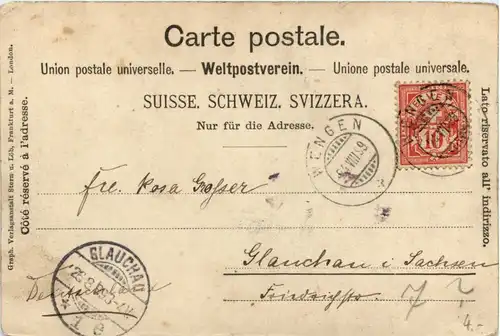 Carte postale.
Union postale universelle. — Weltpostverein. — Unione postale universale.
SUISSE. SCHWEIZ. SVIZZERA.
Nur für die Adresse.
Graph. Verlagsanstalt Stern u. Löb, Frankfurt a. M. — London.
Côté réservé à l'adresse.
Lato riservato all' indirizzo.
WENGEN
WENGEN
10
Frl. Rosa Grosser
GLAUCHAU
Glauchau i. Sachsen
Friedrichstr.
4.-